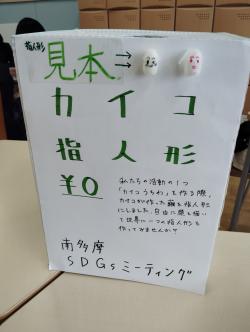 指人形
見本→→
カイコ
指人形
¥0
私たちの活動の1つ
「カイコうちわ」を作る際、
カイコが作った繭を指人形
にしました。自由に顔を描い
て世界に一つの指人形を
作ってみませんか?
南多摩
SDGsミーティング